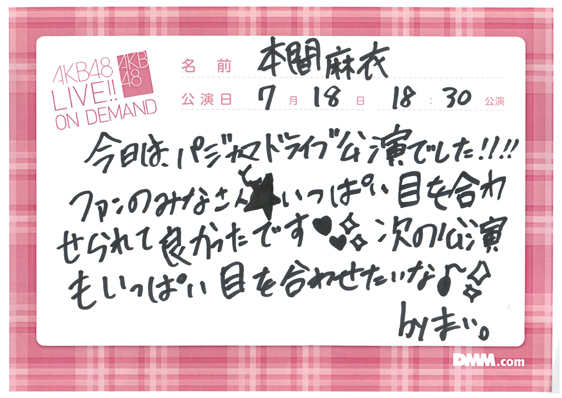 AKB48
LIVE!!
ON DEMAND
AKB
48
名前 本間麻衣
公演日 7月18日 18:30公演
今日は、パジャマドライブ公演でした!!!!
ファンのみなさんと★いっぱい目を合わ
せられて良かったです♥♥次の公演
もいっぱい目を合わせたいな♪
byまい。
DMM.com